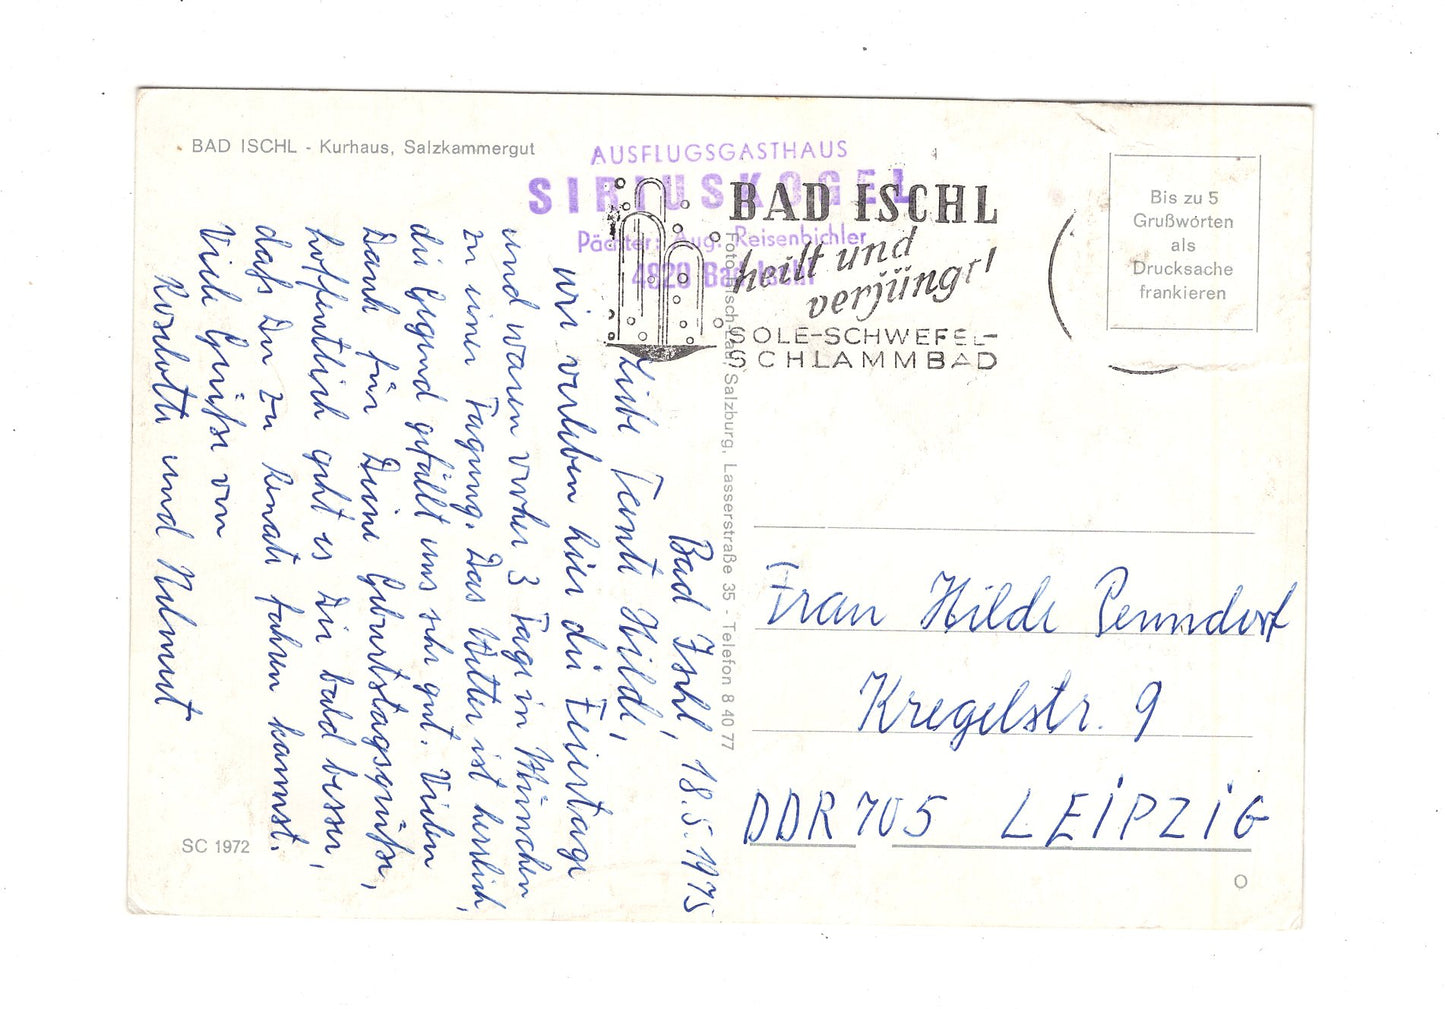 BAD ISCHL - Kurhaus, Salzkammergut
AUSFLUGSGASTHAUS
SIRIUSKOGEL
Pächter: Aug. Reisenbichler
4820 Bad Ischl
BAD ISCHL
heilt und
verjüngt!
SOLE-SCHWEFEL-
SCHLAMMBAD
Bis zu 5
Grußworten
als
Drucksache
frankieren
Bad Ischl, 18.5.1975
Liebe Tante Hilde,
wir verleben hier die Feiertage
und waren vorher 3 Tage in München
zu einer Tagung. Das Wetter ist herrlich,
die Gegend gefällt uns sehr gut. Vielen
Dank für Deine Geburtstagsgrüße,
hoffentlich geht es Dir bald besser,
daß Du zu Renate fahren kannst.
Viele Grüße von
Roselotte und Helmut
Salzburg, Lasserstraße 35 - Telefon 8 40 77
Frau Hilde Penndorf
Kregelstr. 9
DDR 705 LEIPZIG
SC 1972